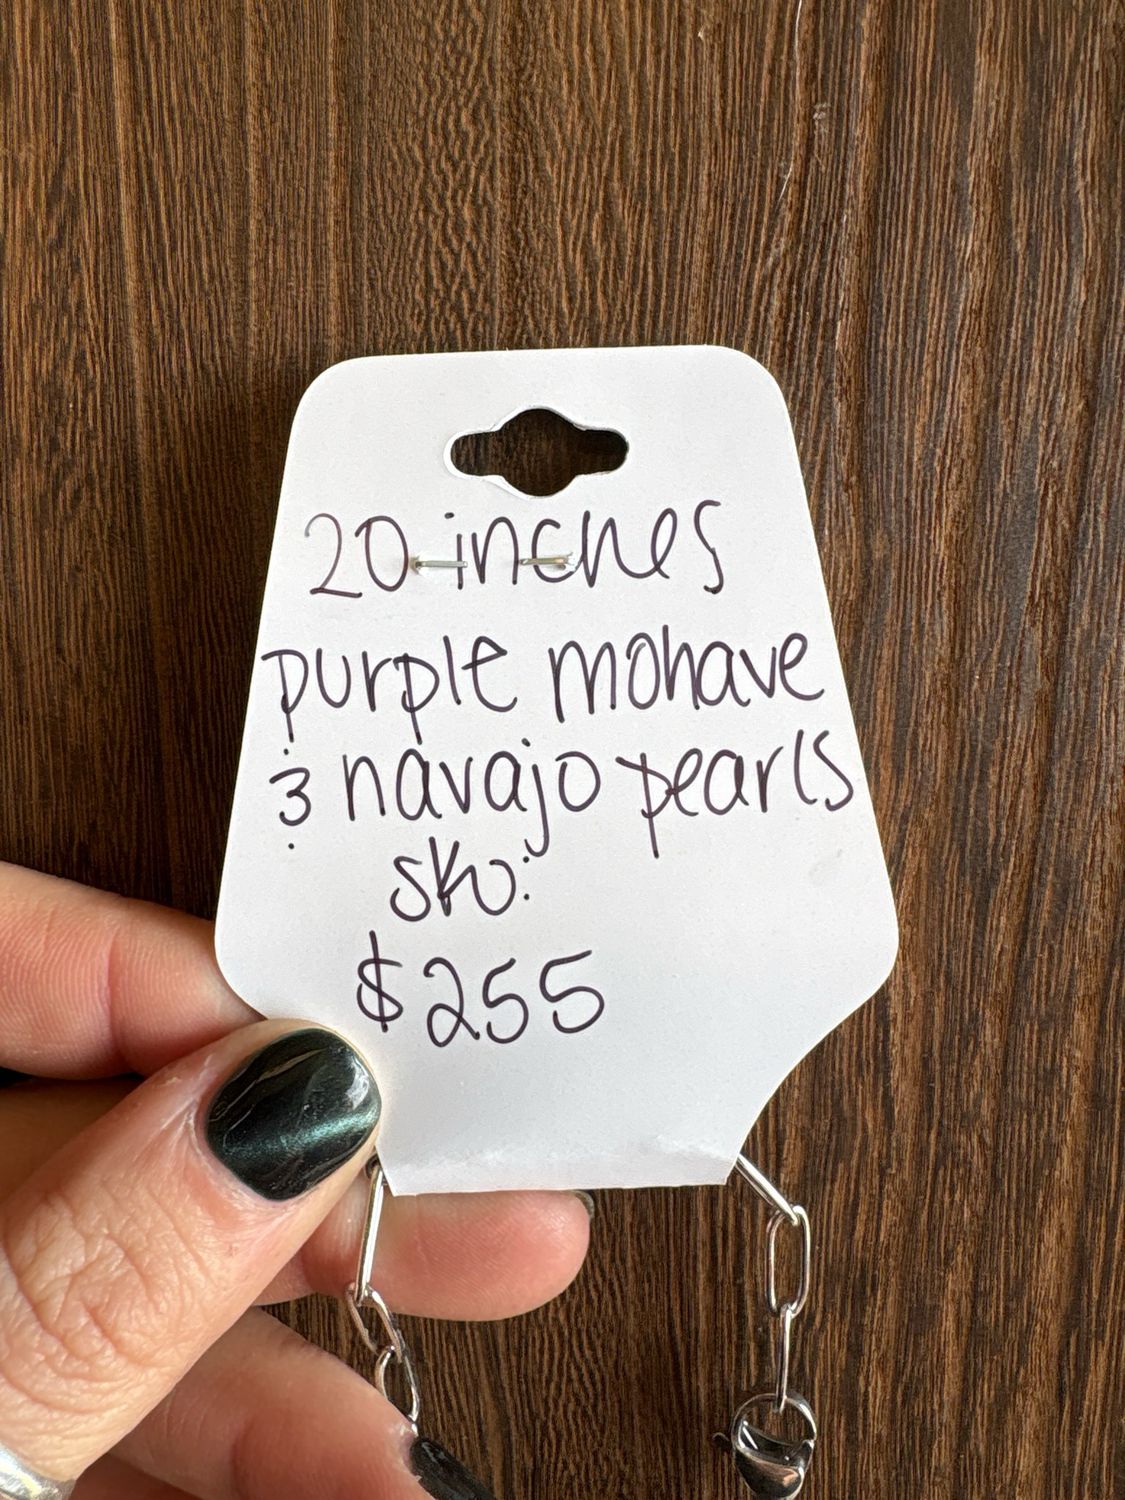 20 inches
purple mohave
& navajo pearls
sku:
$255